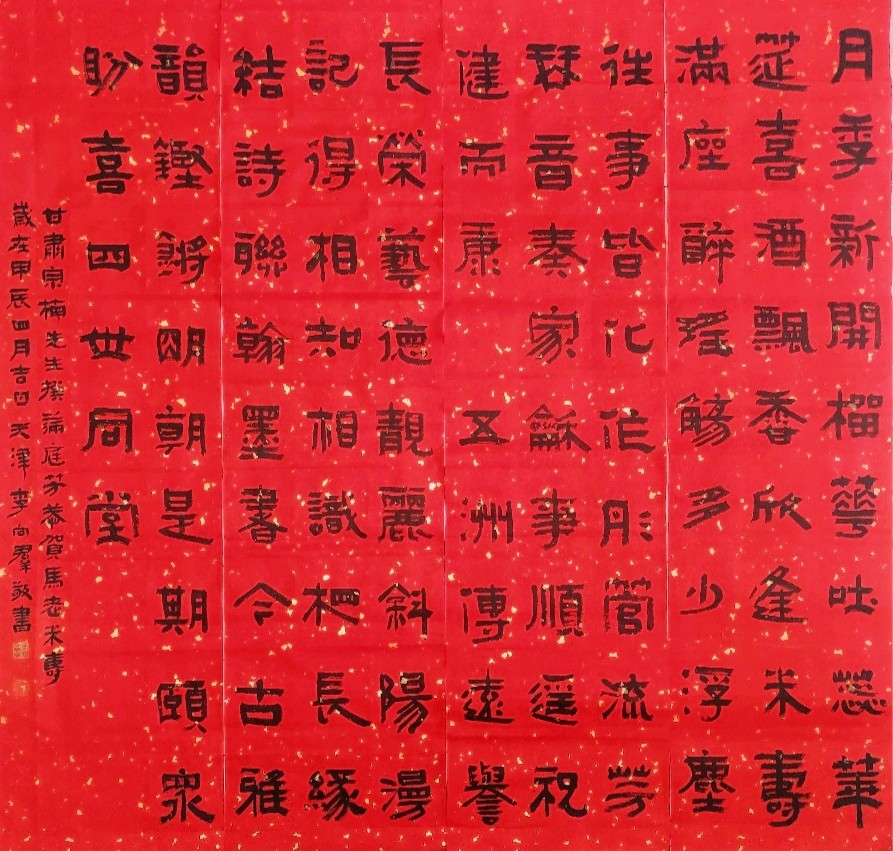 月季新開榴華吐蕊華
筵喜酒飄香欣逢米壽
滿座醉瑤觴多少浮塵
往事皆化作彤管流芳
琴音奏家龢事順遥祝
健而康五洲傳遠譽
長榮藝德靚麗斜陽漫
記得相知相識把長緣
結詩聯翰墨書今古雅
韻鏗鏘明朝是期頤眾
盼喜四世同堂
甘肅宗楠先生撰滿庭芳恭賀馬老米壽
歲在甲辰四月吉日天津李向群敬書